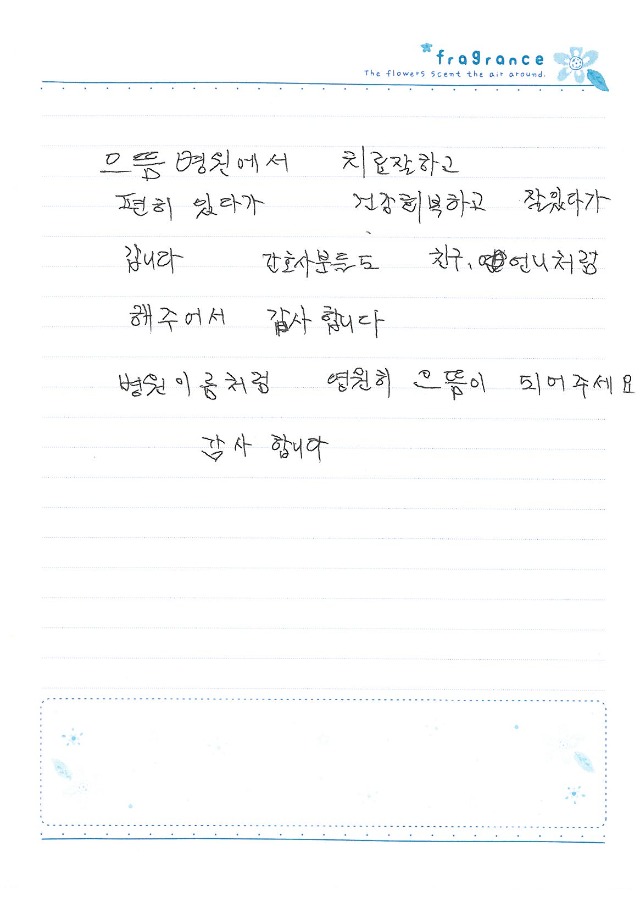 *fragrance
The flowers scent the air around.
으뜸 병원에서 치료잘하고
편히 있다가 건강회복하고 잘있다가
갑니다 간호사분들도 친구, 언니처럼
해주어서 감사합니다
병원이름처럼 영원히 으뜸이 되어주세요
감사 합니다